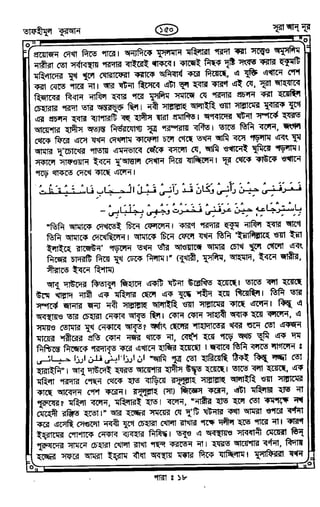 তাফহীমুল কুরআন
১৫০
সূরা আন্ নূর
প্রয়োজন দেখা দিতে পারে। অন্যদিকে মুসলমান মহিলারা পরদা করা সত্ত্বেও অমুসলিম
নারীরা তো সর্বাবস্থায় পরদার বাইরেই থাকবে। কাজেই নিছক দৃষ্টি সংযত করার হুকুমটি
মহিলাদের মুখ খুলে ঘোরাফেরা করাকে অনিবার্য করে দিয়েছে, এ যুক্তি এখানে পেশ
করা যেতে পারে না। আর ঘটনা হিসেবে এটা ভুল হবার কারণ এই যে, সূরা আহযাবে
হিজাবের বিধান নাযিল হবার পরে মুসলিম সমাজে যে পরদার প্রচলন করা হয়েছিল
চেহারার পরদা তার অন্তরভুক্ত ছিল। নবী সাল্লাল্লাহু আলাইহি ওয়া সাল্লামের মুবারক যুগে
এর প্রচলন হবার ব্যাপারটি বহু হাদীস দ্বারা প্রমাণিত। অপবাদের ঘটনা সম্পর্কে হযরত
আয়েশার হাদীস অত্যন্ত নির্ভরযোগ্য সূত্র পরম্পরায় বর্ণিত। তাতে তিনি বলেন, জংগল
থেকে ফিরে এসে যখন দেখলাম কাফেলা চলে গেছে তখন আমি বসে পড়লাম এবং ঘুম
আমার দু'চোখের পাতায় এমনভাবে জেঁকে বসলো যে, আমি ওখানেই ঘুমিয়ে পড়লাম।
সকালে সাফওয়ান ইবনে মু'আত্তাল সেখান দিয়ে যাচ্ছিলেন। দূর থেকে কাউকে ওখানে
পড়ে থাকতে দেখে কাছে এলেন।
فَعَرَفَنِي حِينَ رَآنِي وَكَانَ قَدْ رَآنِي قَبْلَ الْحِجَابِ فَاسْتَيْقَظْتُ
بِاسْتِرْجَاعِهِ حِينَ عَرَفَنِي فَخَمَّرْتُ وَجْهِي بِجِلْبَابِي -
"তিনি আমাকে দেখতেই চিনে ফেললেন। কারণ পরদার হুকুম নাযিল হবার আগে
তিনি আমাকে দেখেছিলেন। আমাকে চিনে ফেলে যখন তিনি "ইন্নালিল্লাহে ওয়া ইন্না
ইলাইহে রাজেউন" পড়লেন তখন তাঁর আওয়াজে আমার চোখ খুলে গেলো এবং
নিজের চাদরটি দিয়ে মুখ ঢেকে নিলাম।" (বুখারী, মুসলিম, আহমাদ, ইবনে জারীর,
সীরাতে ইবনে হিশাম)
আবু দাউদের কিতাবুল জিহাদে একটি ঘটনা উল্লেখিত হয়েছে। তাতে বলা হয়েছে
উম্মে খাল্লাদ নাম্নী এক মহিলার ছেলে এক যুদ্ধে শহীদ হয়ে গিয়েছিল। তিনি তার
সম্পর্কে জানার জন্য নবী সাল্লাল্লাহু আলাইহি ওয়া সাল্লামের কাছে এলেন। কিন্তু এ
অবস্থায়ও তার চেহারা নেকাব আবৃত ছিল। কোন কোন সাহাবী অবাক হয়ে বললেন, এ
সময়ও তোমার মুখ নেকাবে আবৃত। অর্থাৎ ছেলের শাহাদাতের খবর শুনে তো একজন
মায়ের শরীরের প্রতি কোন নজর থাকে না, বেহুঁশ হয়ে পড়ে অথচ তুমি এক দম
নিশ্চিন্তে নিজেকে পরদাবৃত করে এখানে হাজির হয়েছো! জবাবে তিনি বলতে লাগলেন :
ان ارزا ابنى فلن ارزا حيائى "আমি পুত্র তো হারিয়েছি ঠিকই কিন্তু লজ্জা তো
হারাইনি"। আবু দাউদেই হযরত আয়েশার হাদীস উদ্ধৃত হয়েছে। তাতে বলা হয়েছে, এক
মহিলা পরদার পেছন থেকে হাত বাড়িয়ে রসূলুল্লাহ সাল্লাল্লাহু আলাইহি ওয়া সাল্লামের
কাছে আবেদন পেশ করেন। রসূলুল্লাহ (সা) জিজ্ঞেস করেন, এটা মহিলার হাত না
পুরুষের? মহিলা বলেন, মহিলারই হাত। বলেন, "নারীর হাত হলে তো কমপক্ষে নখ
মেহেদী রঞ্জিত হতো।" আর হজ্জের সময়ের যে দু'টি ঘটনার কথা আমরা ওপরে বর্ণনা
করে এসেছি সেগুলো নববী যুগে চেহারা খোলা রাখার পক্ষে দলীল হতে পারে না। কারণ
ইহরামের পোশাকে নেকাব ব্যবহার নিষিদ্ধ। তবুও এ অবস্থায়ও সাবধানী মেয়েরা ভিন্
পুরুষদের সামনে চেহারা খোলা রাখা পছন্দ করতেন না। হযরত আয়েশার বর্ণনা, বিদায়
হজ্জের সফরে আমরা ইহরাম বাঁধা অবস্থায় মক্কার দিকে যাচ্ছিলাম। মুসাফিররা যখন
পারা : ১৮